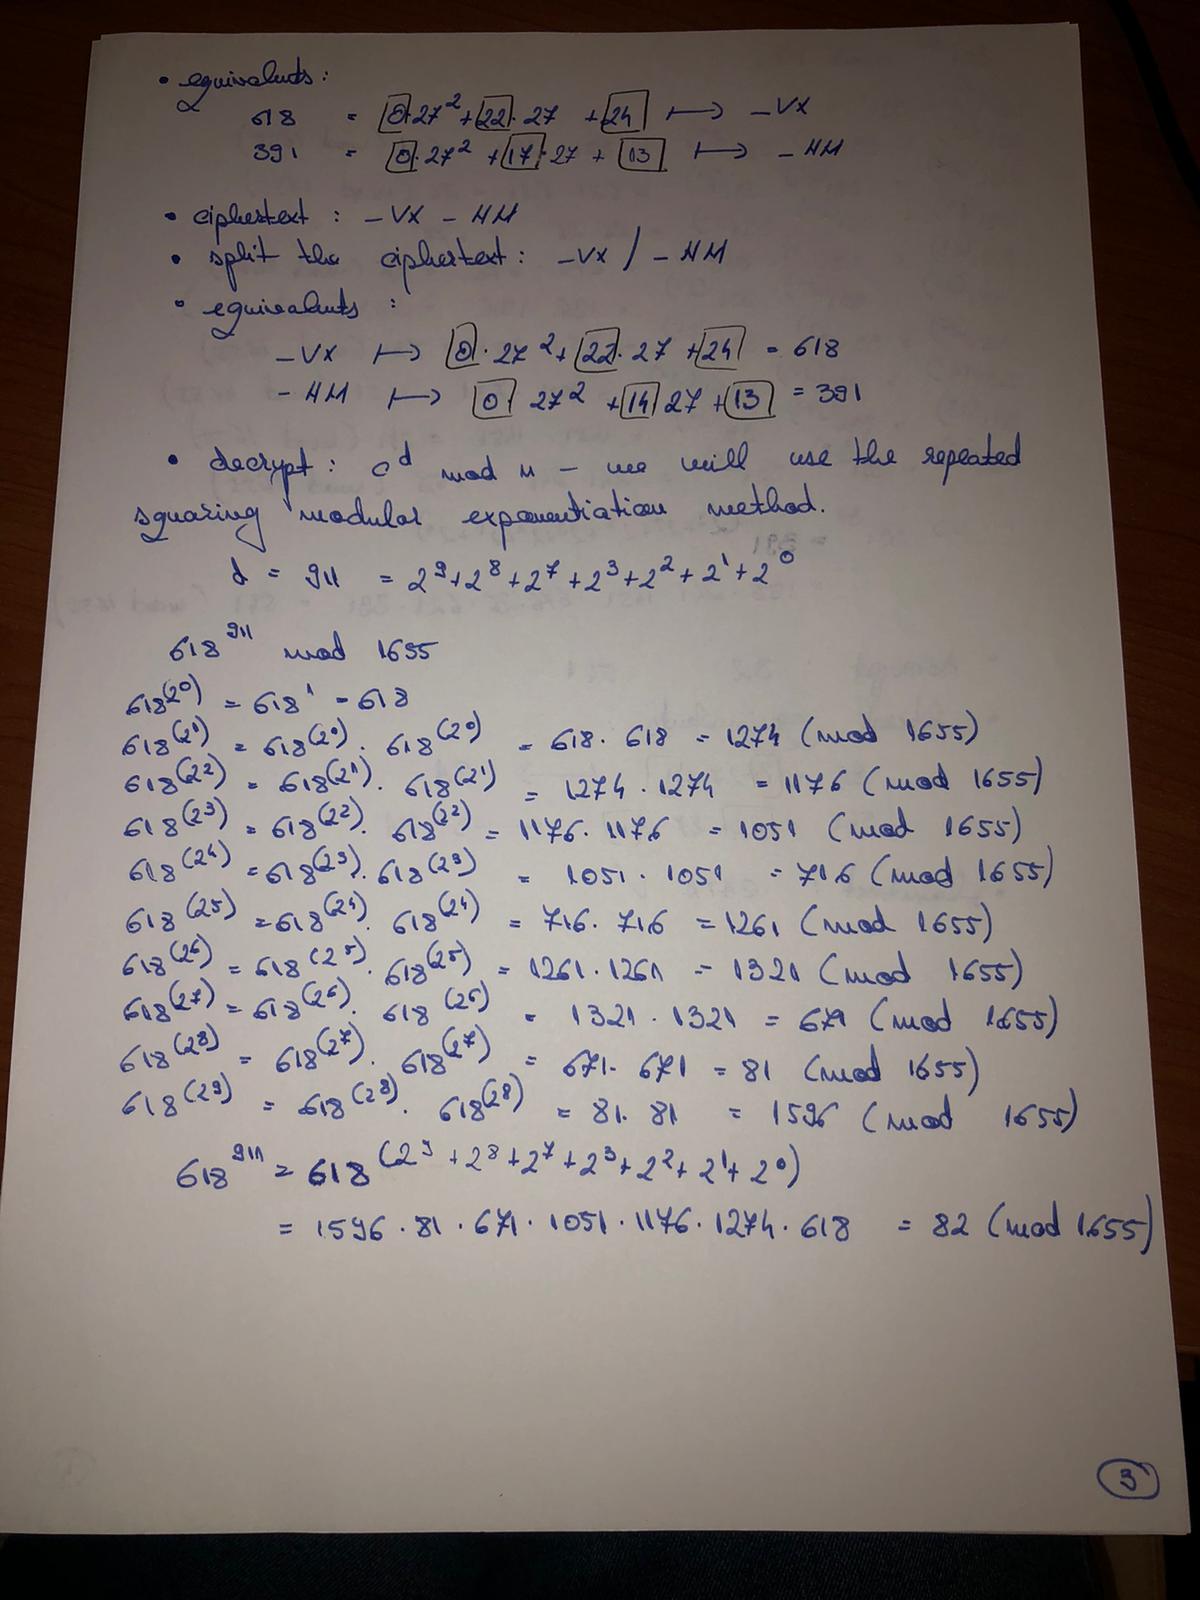 • equivalents:
618 = 0·27² + 22·27 + 24 ↦ _VX
391 = 0·27² + 17·27 + 13 ↦ _HM
• ciphertext: _VX_HM
• split the ciphertext: _VX / _HM
• equivalents:
_VX ↦ 0·27² + 22·27 + 24 = 618
_HM ↦ 0 27² + 14 27 + 13 = 391
• decrypt: c^d mod n – we will use the repeated
squaring modular exponentiation method.
d = 911 = 2⁹+2⁸+2⁷+2³+2²+2¹+2⁰
618⁹¹¹ mod 1655
618^(2⁰) = 618¹ = 618
618^(2¹) = 618^(2⁰) · 618^(2⁰) = 618 · 618 = 1274 (mod 1655)
618^(2²) = 618^(2¹) · 618^(2¹) = 1274 · 1274 = 1176 (mod 1655)
618^(2³) = 618^(2²) · 618^(2²) = 1176 · 1176 = 1051 (mod 1655)
618^(2⁴) = 618^(2³) · 618^(2³) = 1051 · 1051 = 716 (mod 1655)
618^(2⁵) = 618^(2⁴) · 618^(2⁴) = 716 · 716 = 1261 (mod 1655)
618^(2⁶) = 618^(2⁵) · 618^(2⁵) = 1261 · 1261 = 1321 (mod 1655)
618^(2⁷) = 618^(2⁶) · 618^(2⁶) = 1321 · 1321 = 671 (mod 1655)
618^(2⁸) = 618^(2⁷) · 618^(2⁷) = 671 · 671 = 81 (mod 1655)
618^(2⁹) = 618^(2⁸) · 618^(2⁸) = 81 · 81 = 1596 (mod 1655)
618⁹¹¹ = 618^(2⁹+2⁸+2⁷+2³+2²+2¹+2⁰)
= 1596 · 81 · 671 · 1051 · 1176 · 1274 · 618 = 82 (mod 1655)
3